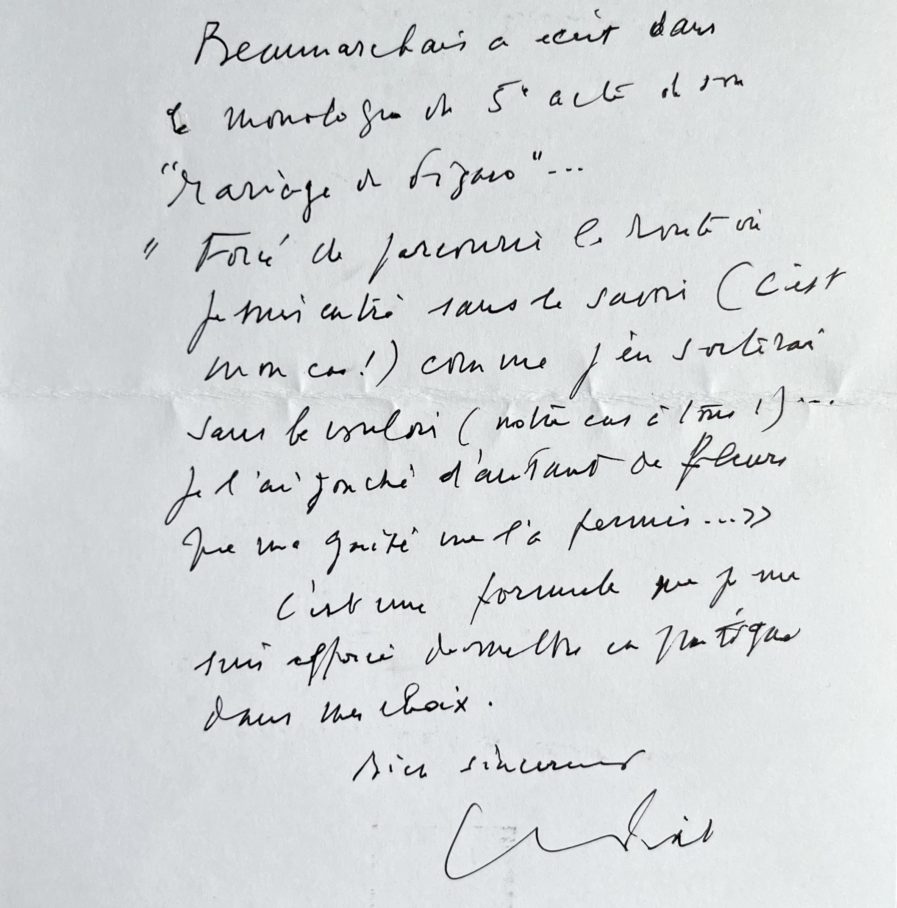 Beaumarchais a écrit dans
le monologue du 5e acte de son
"Mariage de Figaro"...
" Forcé de parcourir la route où
je suis entré sans le savoir (c'est
mon cas!) comme j'en sortirai
sans le vouloir (notre cas à tous!)...
je l'ai jonché d'autant de fleurs
que ma gaité me l'a permis...»
C'est une formule que je me
suis efforcé de mettre en pratique
dans mes choix.
Bien sincèrement